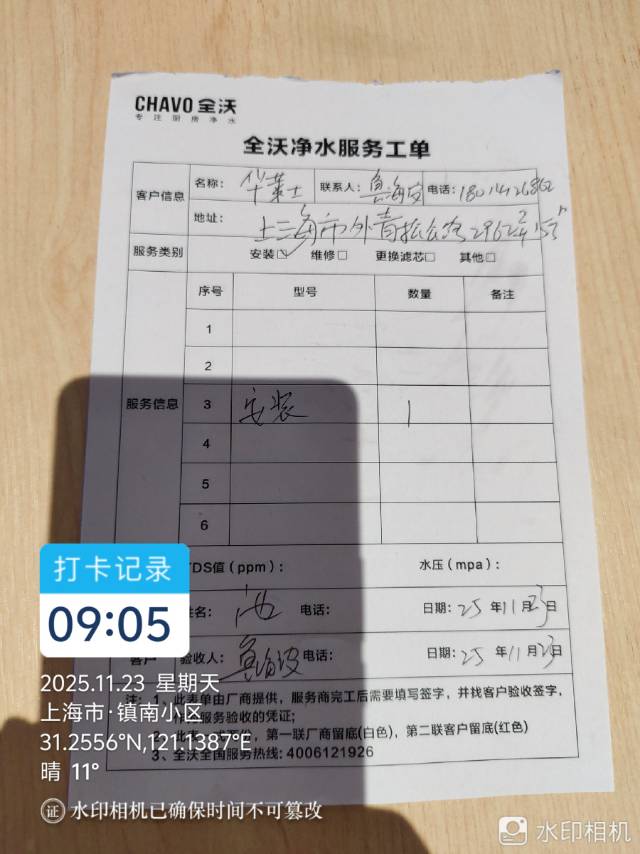 CHAVO 全沃
专注厨房净水
全沃净水服务工单
客户信息 名称： 华莱士 联系人： 电话：
地址： 上海市外青松公路
服务类别 安装☑ 维修□ 更换滤芯□ 其他□
服务信息 序号 型号 数量 备注
1
2
3 安装 1
4
5
6
TDS值（ppm）： 水压（mpa）：
姓名： 电话： 日期：25年11月23日
客户 验收人： 电话： 日期：25年11月23日
注：1、此表单由厂商提供，服务商完工后需要填写签字，并找客户验收签字，
服务验收的凭证；
2、此 ，第一联厂商留底(白色)，第二联客户留底(红色)
3、全沃全国服务热线：4006121926
打卡记录
09:05
2025.11.23 星期天
上海市·镇南小区
31.2556°N,121.1387°E
晴 11°
证 水印相机已确保时间不可篡改
水印相机